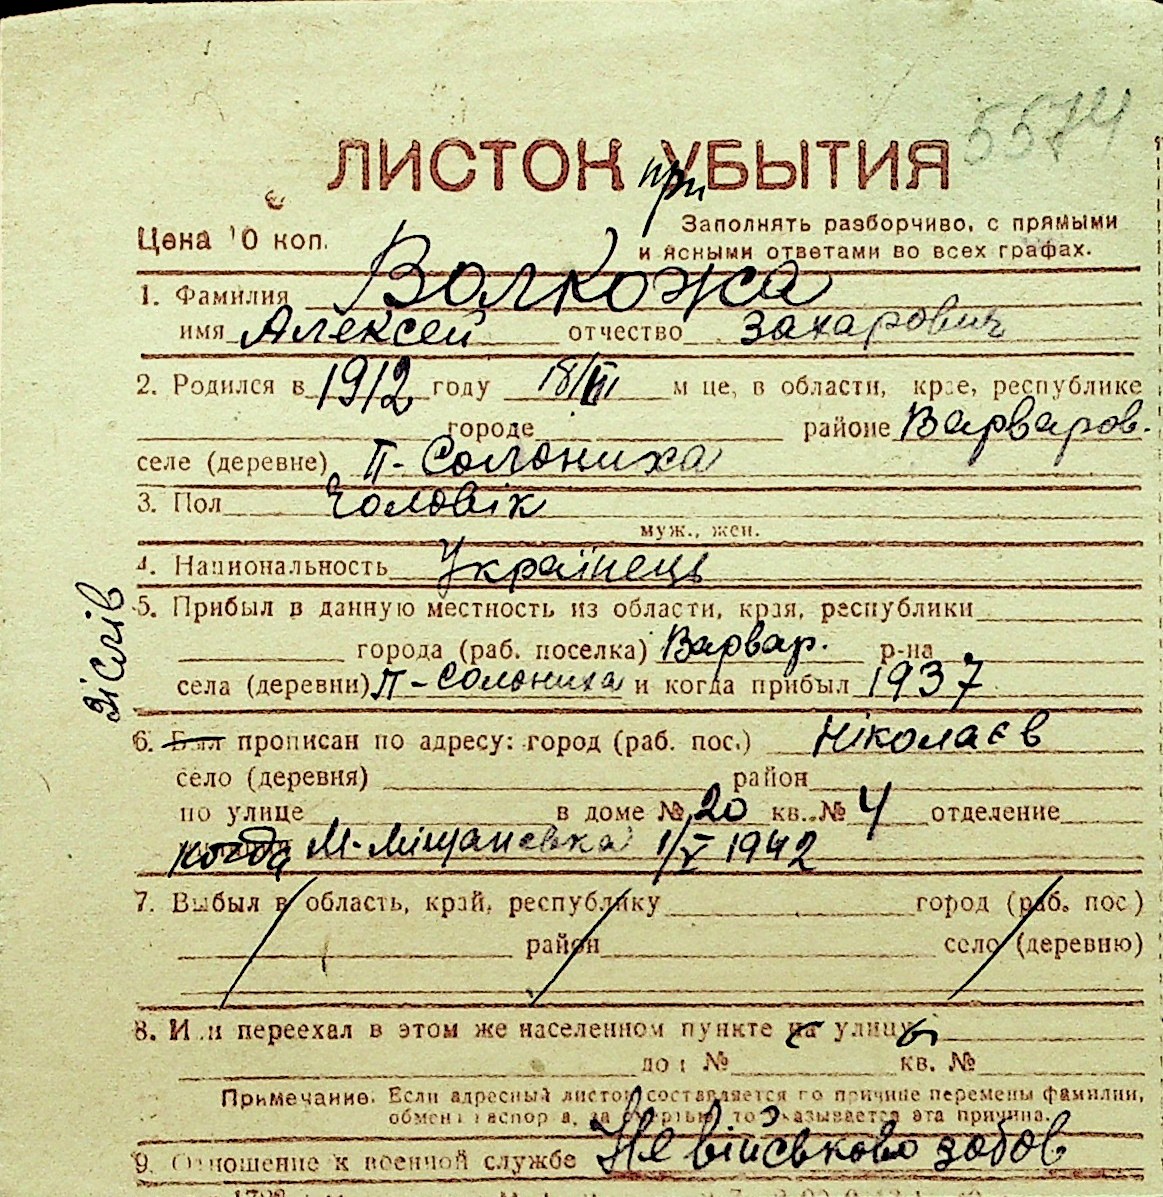 5574
ЛИСТОК при УБЫТИЯ
Цена 10 коп.
Заполнять разборчиво, с прямыми
и ясными ответами во всех графах.
1. Фамилия Волкожа
имя Алексей отчество Захарович
2. Родился в 1912 году 18/III м це, в области, крае, республике
городе районе Варваров.
селе (деревне) П-Солониха
3. Пол Чоловік
муж., жен.
4. Национальность Українець
5. Прибыл в данную местность из области, края, республики
города (раб. поселка) Варвар. р-на
села (деревни) П-Солониха и когда прибыл 1937
6. Был прописан по адресу: город (раб. пос.) Ніколаєв
село (деревня) район
по улице в доме № 20 кв. № 4 отделение
когда М-Міщаневка 1/V 1942
7. Выбыл в область, край, республику город (раб. пос.)
район село (деревню)
8. Или переехал в этом же населенном пункте с улицы
дом № кв. №
Примечание. Если адресный листок составляется по причине перемены фамилии,
обмен паспорта, за смертью, то указывается эта причина.
9. Отношение к военной службе Не військово зобов